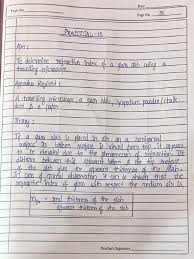 Date
Page No.
PRACTICAL - 10
Aim :
To determine refractive index of a glass slab using a
travelling microscope.
Apparatus Required :
A travelling microscope, a glass slab, lycopodium powder/chalk
dust & a paper
Theory :
If a glass slab is placed in air on a horizontal
surface its bottom surface is viewed from top, it appears
to be elevated due to the phenomenon of refraction. The
distance between this apparent bottom & the top surface
of the slab give the apparent thickness of the slab.
In case of normal observation it can be shown that the
refractive index of glass with respect the medium air is
real thickness of the slab
apparent thickness of the slab
Teacher's Signature